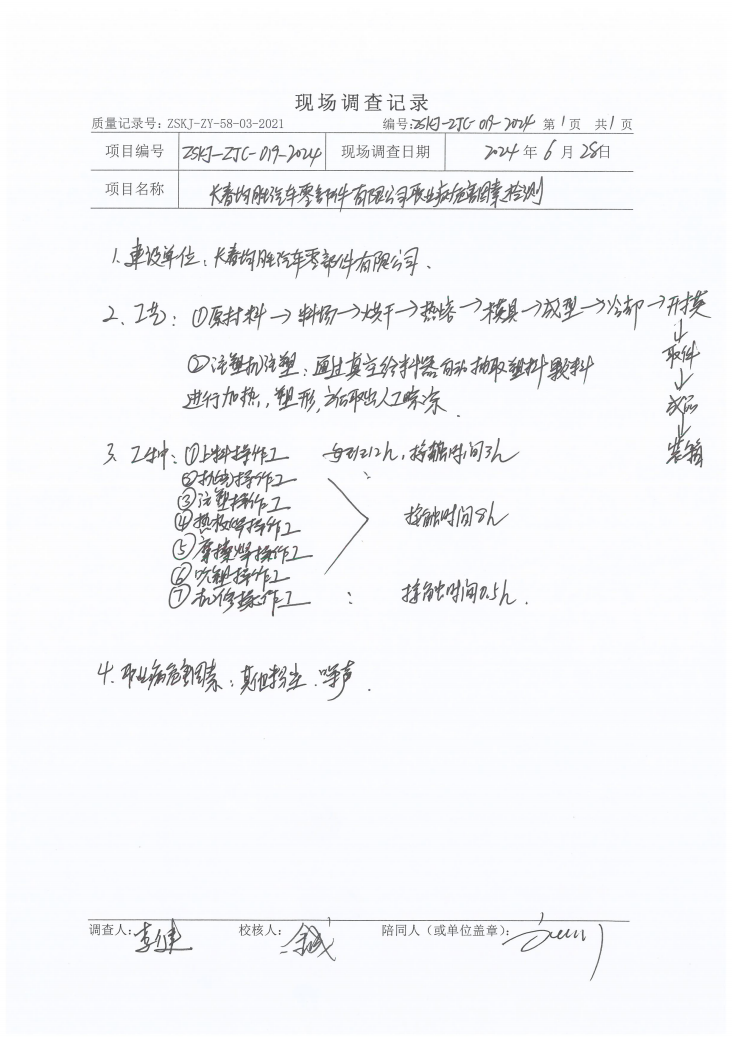 现场调查记录
质量记录号：ZSKJ-ZY-58-03-2021 编号：ZSKJ-ZJC-019-2024 第1页 共1页
项目编号 ZSKJ-ZJC-019-2024 现场调查日期 2024年6月28日
项目名称 长春均胜汽车零部件有限公司职业病危害因素检测
1. 建设单位：长春均胜汽车零部件有限公司．
2、工艺：①原材料→料场→烘干→热熔→模具→成型→冷却→开模
↓
取件
↓
成品
↓
装箱
②注塑机注塑：通过真空给料器自动抽取塑料颗粒
进行加热，塑形，
3、工种：①上料操作工 每班12h，接触时间3h
②操作工
③注塑操作工
④热板焊操作工
⑤摩擦焊操作工
⑥吹塑操作工
接触时间8h
⑦机修操作工 ：接触时间0.5h．
4. 职业病危害因素：其他粉尘、噪声．
调查人： 校核人： 陪同人（或单位盖章）：